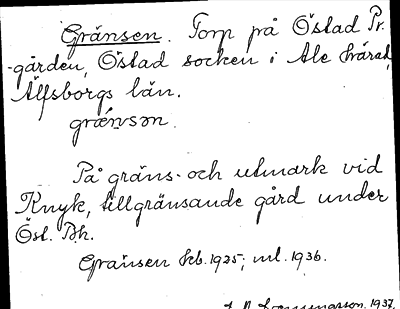 Gränsen. Torp på Östad Pr.
-gården, Östad socken i Ale härad,
Älfsborgs län.
grænsən.
På gräns- och utmark vid
Knyk, tillgränsande gård under
Öst. Bh.
Gränsen kb. 1925; ml. 1936.
1937.